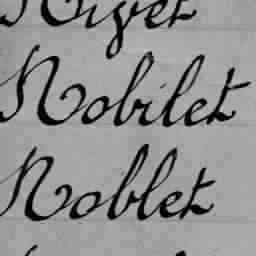 Nobilet
Noblet